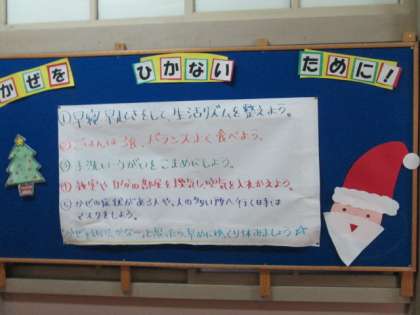 かぜを ひかない ために！
①早寝早おきをして、生活リズムを整えよう。
②ごはんは3食、バランスよく食べよう。
③手洗いうがいをこまめにしよう。
④教室や自分の部屋を換気し空気を入れかえよう。
⑤かぜの症状がある人や、人の多い所へ行く時は
マスクをしよう。
と思ったら早めにゆっくり休みましょう☆